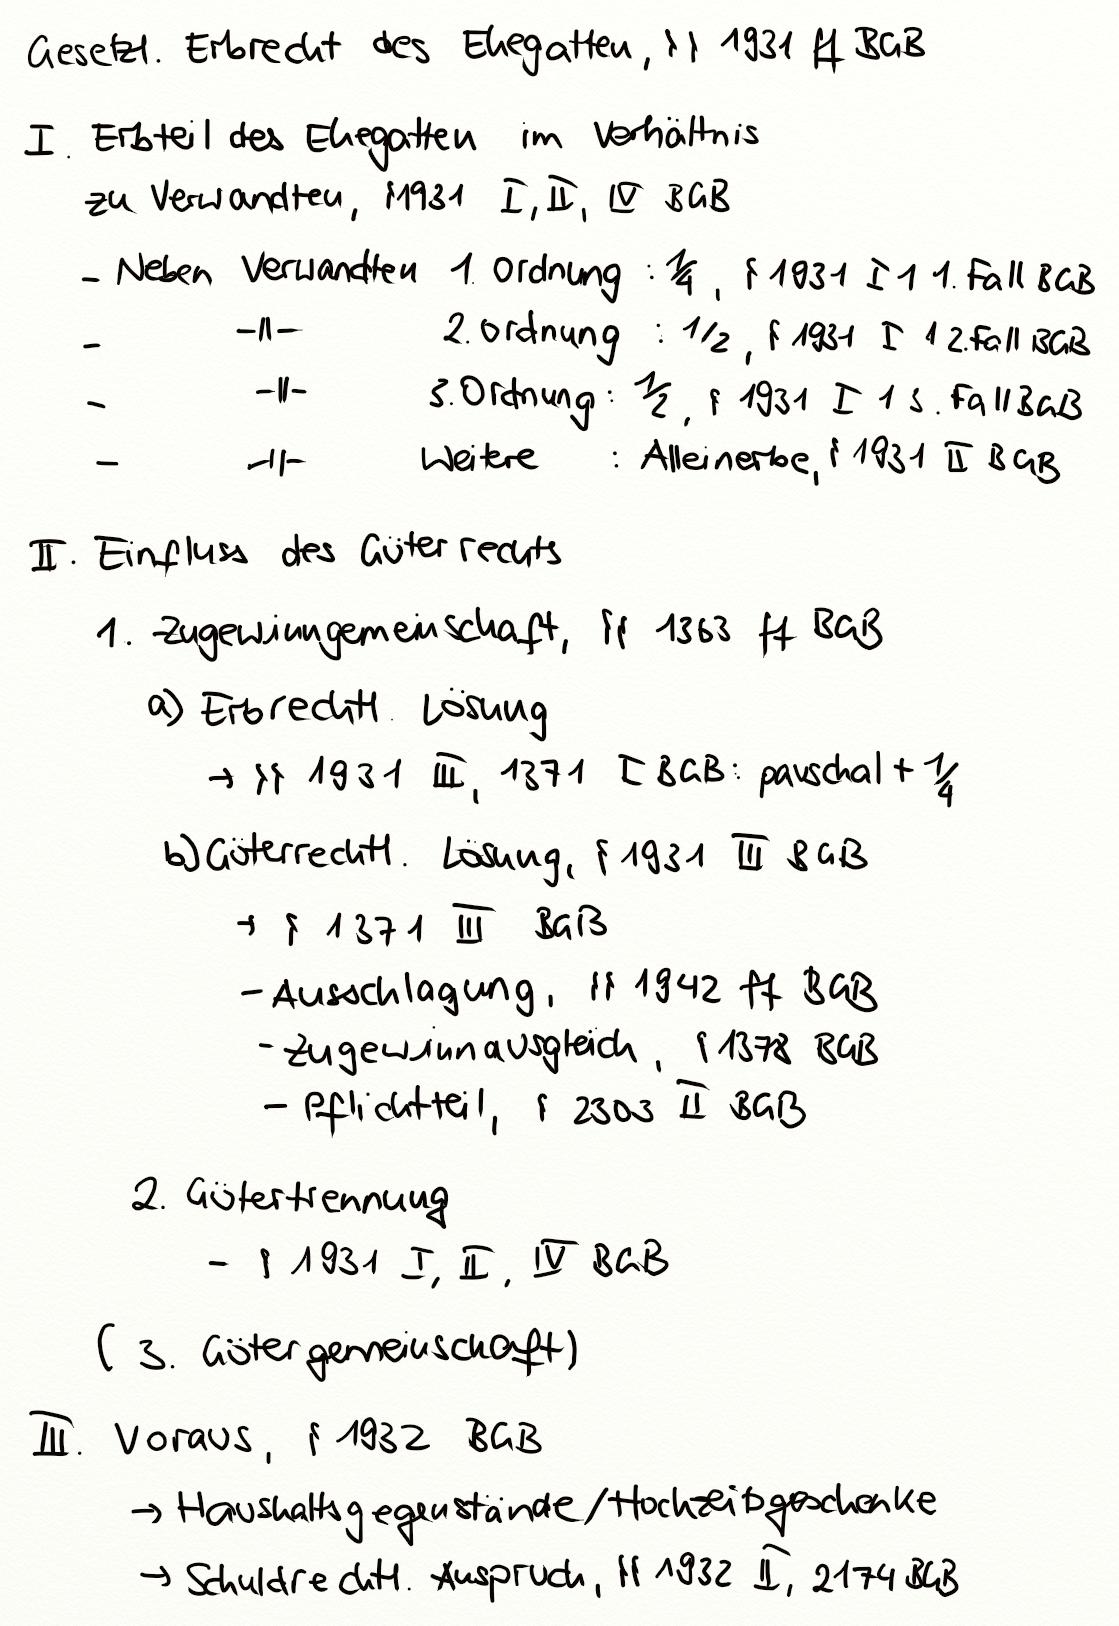 Gesetzl. Erbrecht des Ehegatten, §§ 1931 ff BGB
I. Erbteil des Ehegatten im Verhältnis
zu Verwandten, § 1931 I, II, IV BGB
- Neben Verwandten 1. Ordnung : 1/4, § 1931 I 1 1. Fall BGB
- -||- 2. Ordnung : 1/2, § 1931 I 1 2. Fall BGB
- -||- 3. Ordnung : 1/2, § 1931 I 1 3. Fall BGB
- -||- Weitere : Alleinerbe, § 1931 II BGB
II. Einfluss des Güterrechts
1. Zugewinngemeinschaft, §§ 1363 ff BGB
a) Erbrechtl. Lösung
→ §§ 1931 III, 1371 I BGB: pauschal + 1/4
b) Güterrechtl. Lösung, § 1931 III BGB
→ § 1371 III BGB
- Ausschlagung, §§ 1942 ff BGB
- Zugewinnausgleich, § 1378 BGB
- Pflichtteil, § 2303 II BGB
2. Gütertrennung
- § 1931 I, II, IV BGB
( 3. Gütergemeinschaft)
III. Voraus, § 1932 BGB
→ Haushaltsgegenstände/Hochzeitsgeschenke
→ Schuldrechtl. Anspruch, §§ 1932 II, 2174 BGB